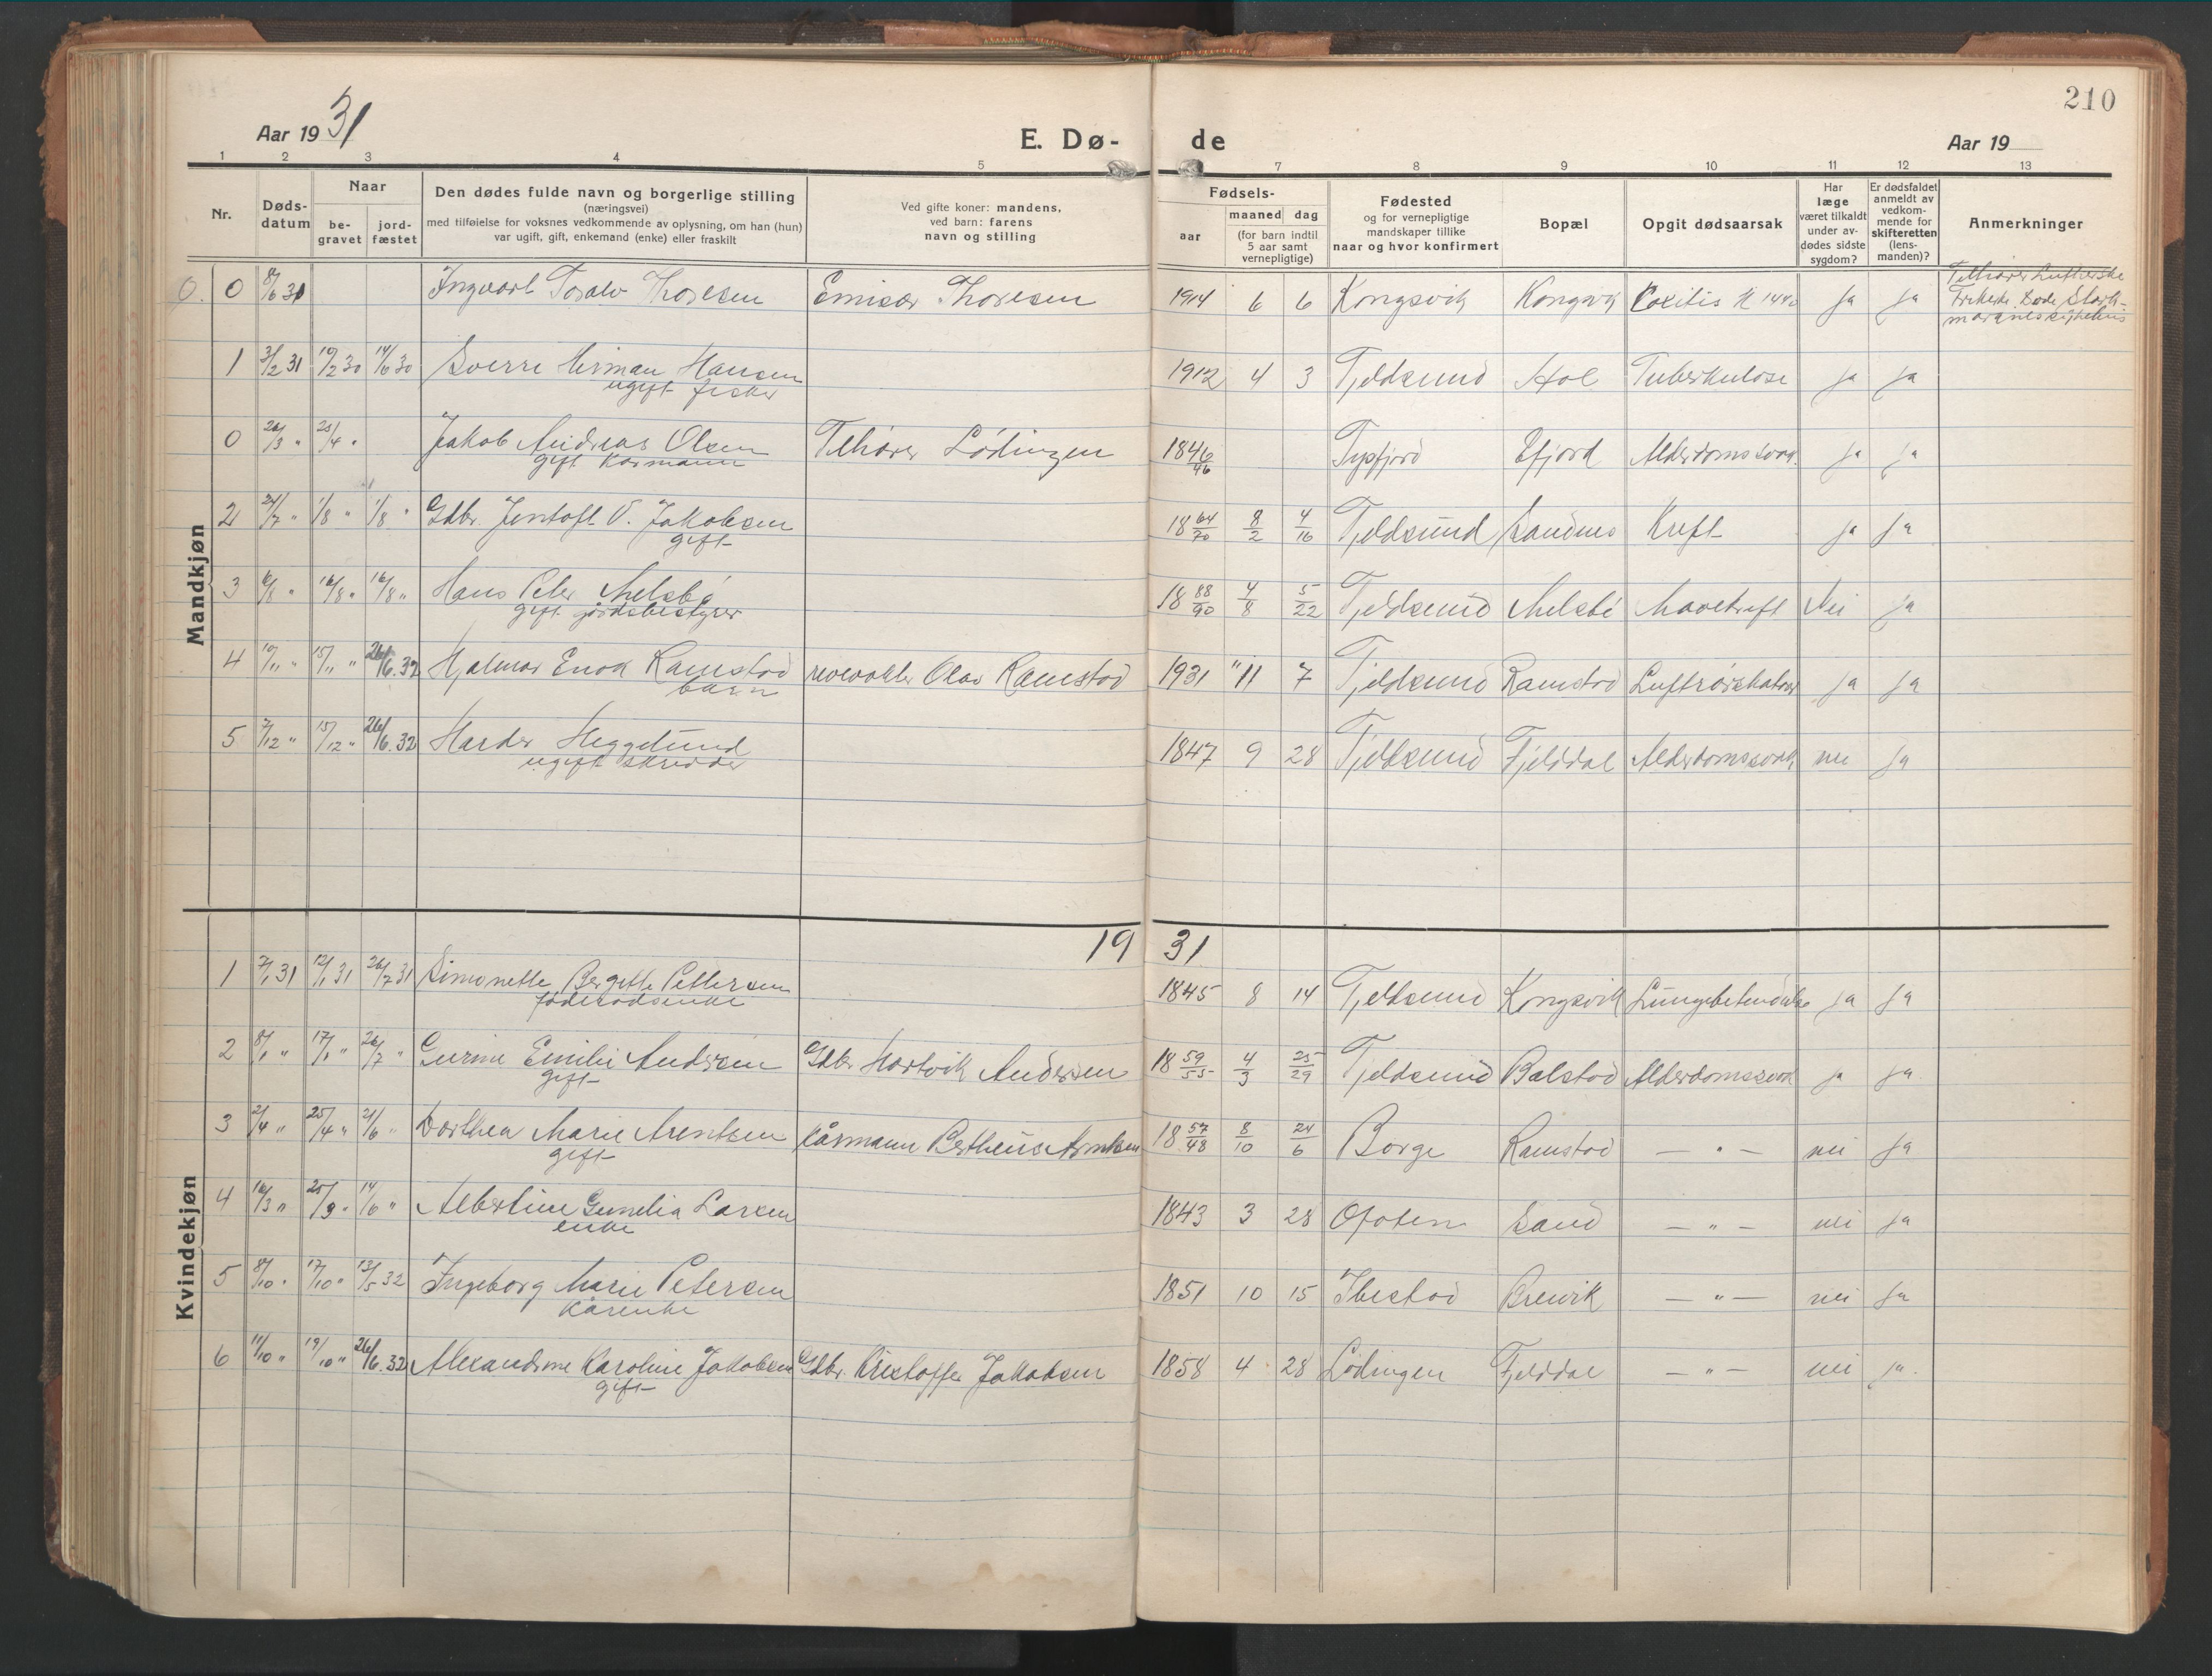 210
Aar 19 31
E. Dø- de
Aar 19
1 2 3 4 5 7 8 9 10 11 12 13
Nr.
Døds-
datum
Naar
be-
gravet
jord-
fæstet
Den dødes fulde navn og borgerlige stilling
(næringsvei)
med tilføielse for voksnes vedkommende av oplysning, om han (hun)
var ugift, gift, enkemand (enke) eller fraskilt
Ved gifte koner: mandens,
ved barn: farens
navn og stilling
Fødsels-
aar
maaned dag
(for barn indtil
5 aar samt
vernepligtige)
Fødested
og for vernepligtige
mandskaper tillike
naar og hvor konfirmert
Bopæl
Opgit dødsaarsak
Har
læge
været tilkaldt
under av-
dødes sidste
sygdom?
Er dødsfaldet
anmeldt av
vedkom-
mende for
skifteretten
(lens-
manden)?
Anmerkninger
Mandkjøn
0. 0 8/6 31 Ingvart Toralv Thoresen Emisær Thoresen 1914 6 6 Kongsvik Kongsvik Coxitis ja ja
Tilhører Lutherske
Frikirke. Døde
1 3/2 31 19/2 30 14/6 30 Sverre Herman Hansen 1912 4 3 Tjeldsund Hol Tuberkulose ja ja
ugift fisker
0 26/3 " 25/4 " Jakob Andreas Olsen Tilhører Lødingen 1846/46 Tysfjord Efjord Alderdomssvak. ja ja
gift Kårmann
2 24/7 " 1/8 " 1/8 " Gdbr. Jentoft O. Jakobsen 18 64/70 8/2 4/16 Tjeldsund Sandnes Kreft ja ja
gift
3 6/8 " 16/8 " 16/8 " Hans Peter Melsbø 18 88/90 4/8 5/22 Tjeldsund Melsbø Mavekreft Nei ja
gift gårdsbestyrer
4 10/11 " 15/11 " 26/6.32 Hjalmar Enok Ramstad Olav Ramstad 1931 " 11 7 Tjeldsund Ramstad Luftrørskatarr ja ja
barn
5 7/12 " 15/12 " 26/6.32 Harder Heggelund 1847 9 28 Tjeldsund Fjelddal Alderdomssvak nei ja
ugift skredder
19 31
Kvindekjøn
1 7/1 31 12/1 31 26/7 31 Simonette Bergitte Pettersen 1845 8 14 Tjeldsund Kongsvik Lungebetendelse ja ja
føderådsenke
2 8/1 " 17/1 " 26/7 " Gurine Emilie Andersen Gdbr Hartvik Andersen 18 59/55 4/3 25/29 Tjeldsund Balstad Alderdomssvak ja ja
gift
3 21/4 " 25/4 " 21/6 " Dorthea Marie Arentsen Kårmann Bertheus Arntsen 18 57/48 8/10 24/6 Borge Ramstad — " — nei ja
gift
4 16/3 " 25/3 " 14/6 " Albertine Gunelia Larsen 1843 3 28 Ofoten Sand — " — nei ja
enke
5 8/10 " 17/10 " 13/5 32 Ingeborg Marie Petersen 1851 10 15 Ibestad Breivik — " — nei ja
Kårenke
6 11/10 " 19/10 " 26/6.32 Alexandrine Karoline Jakobsen Gdbr. Kristoffer Jakobsen 1858 4 28 Lødingen Fjelddal — " — nei ja.
gift